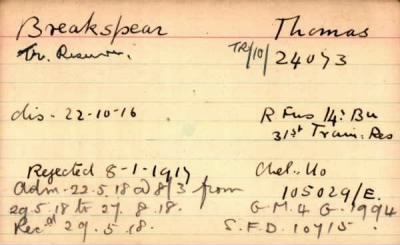 Breakspear Thomas
Tr. Reserve. TR/10/ 24073
dis. 22-10-16 R Fus 14: Bn
31st Train: Res
Rejected 8-1-1917 Chel: No
Adm. 22.5.18 @ 8/3 from 105029/E.
29.5.18 to 27.8.18. G.M.4 G.1994
Rec.d 29.5.18. S.F.D. 10715.